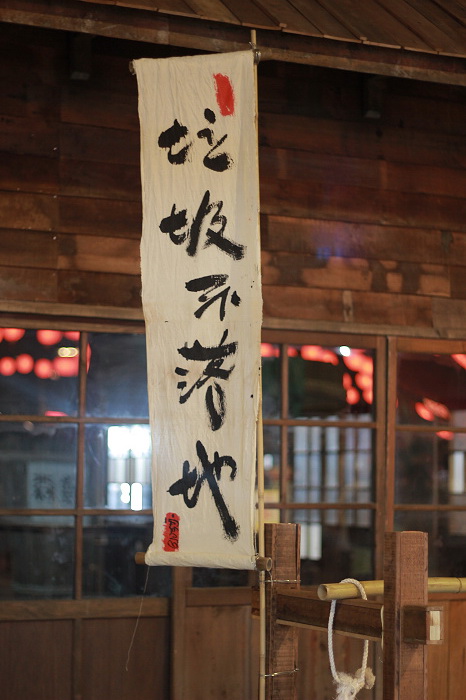 垃圾不落地